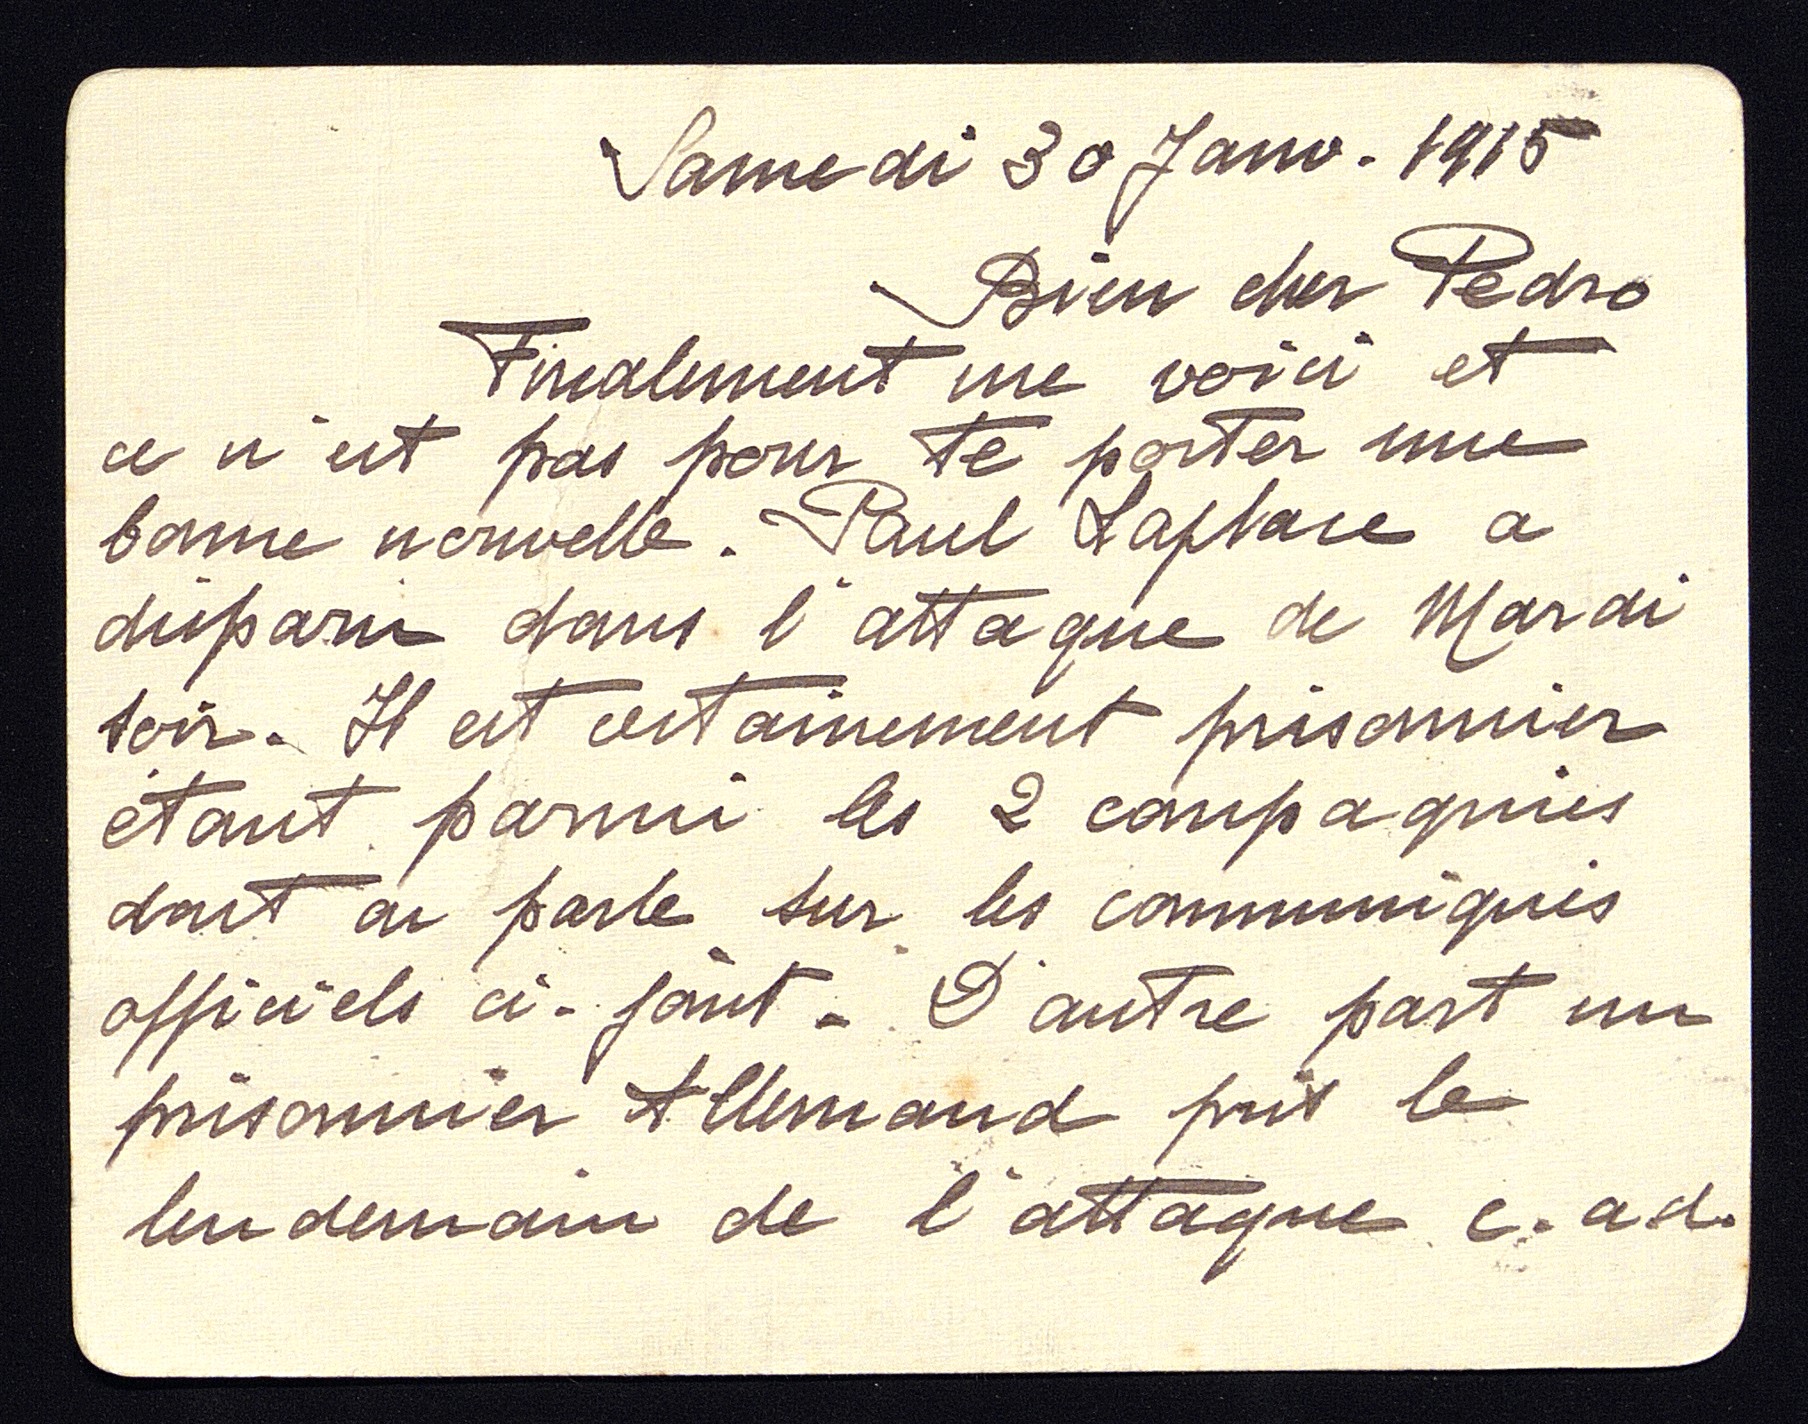 Samedi 30 Janv. 1915
Bien cher Pedro
Finalement me voici et
ce n'est pas pour te porter une
bonne nouvelle. Paul Laplace a
disparu dans l'attaque de Mardi
soir. Il est certainement prisonnier
étant parmi les 2 compagnies
dont on parle sur les communiqués
officiels ci-joint. D'autre part un
prisonnier Allemand pris le
lendemain de l'attaque c. a d.